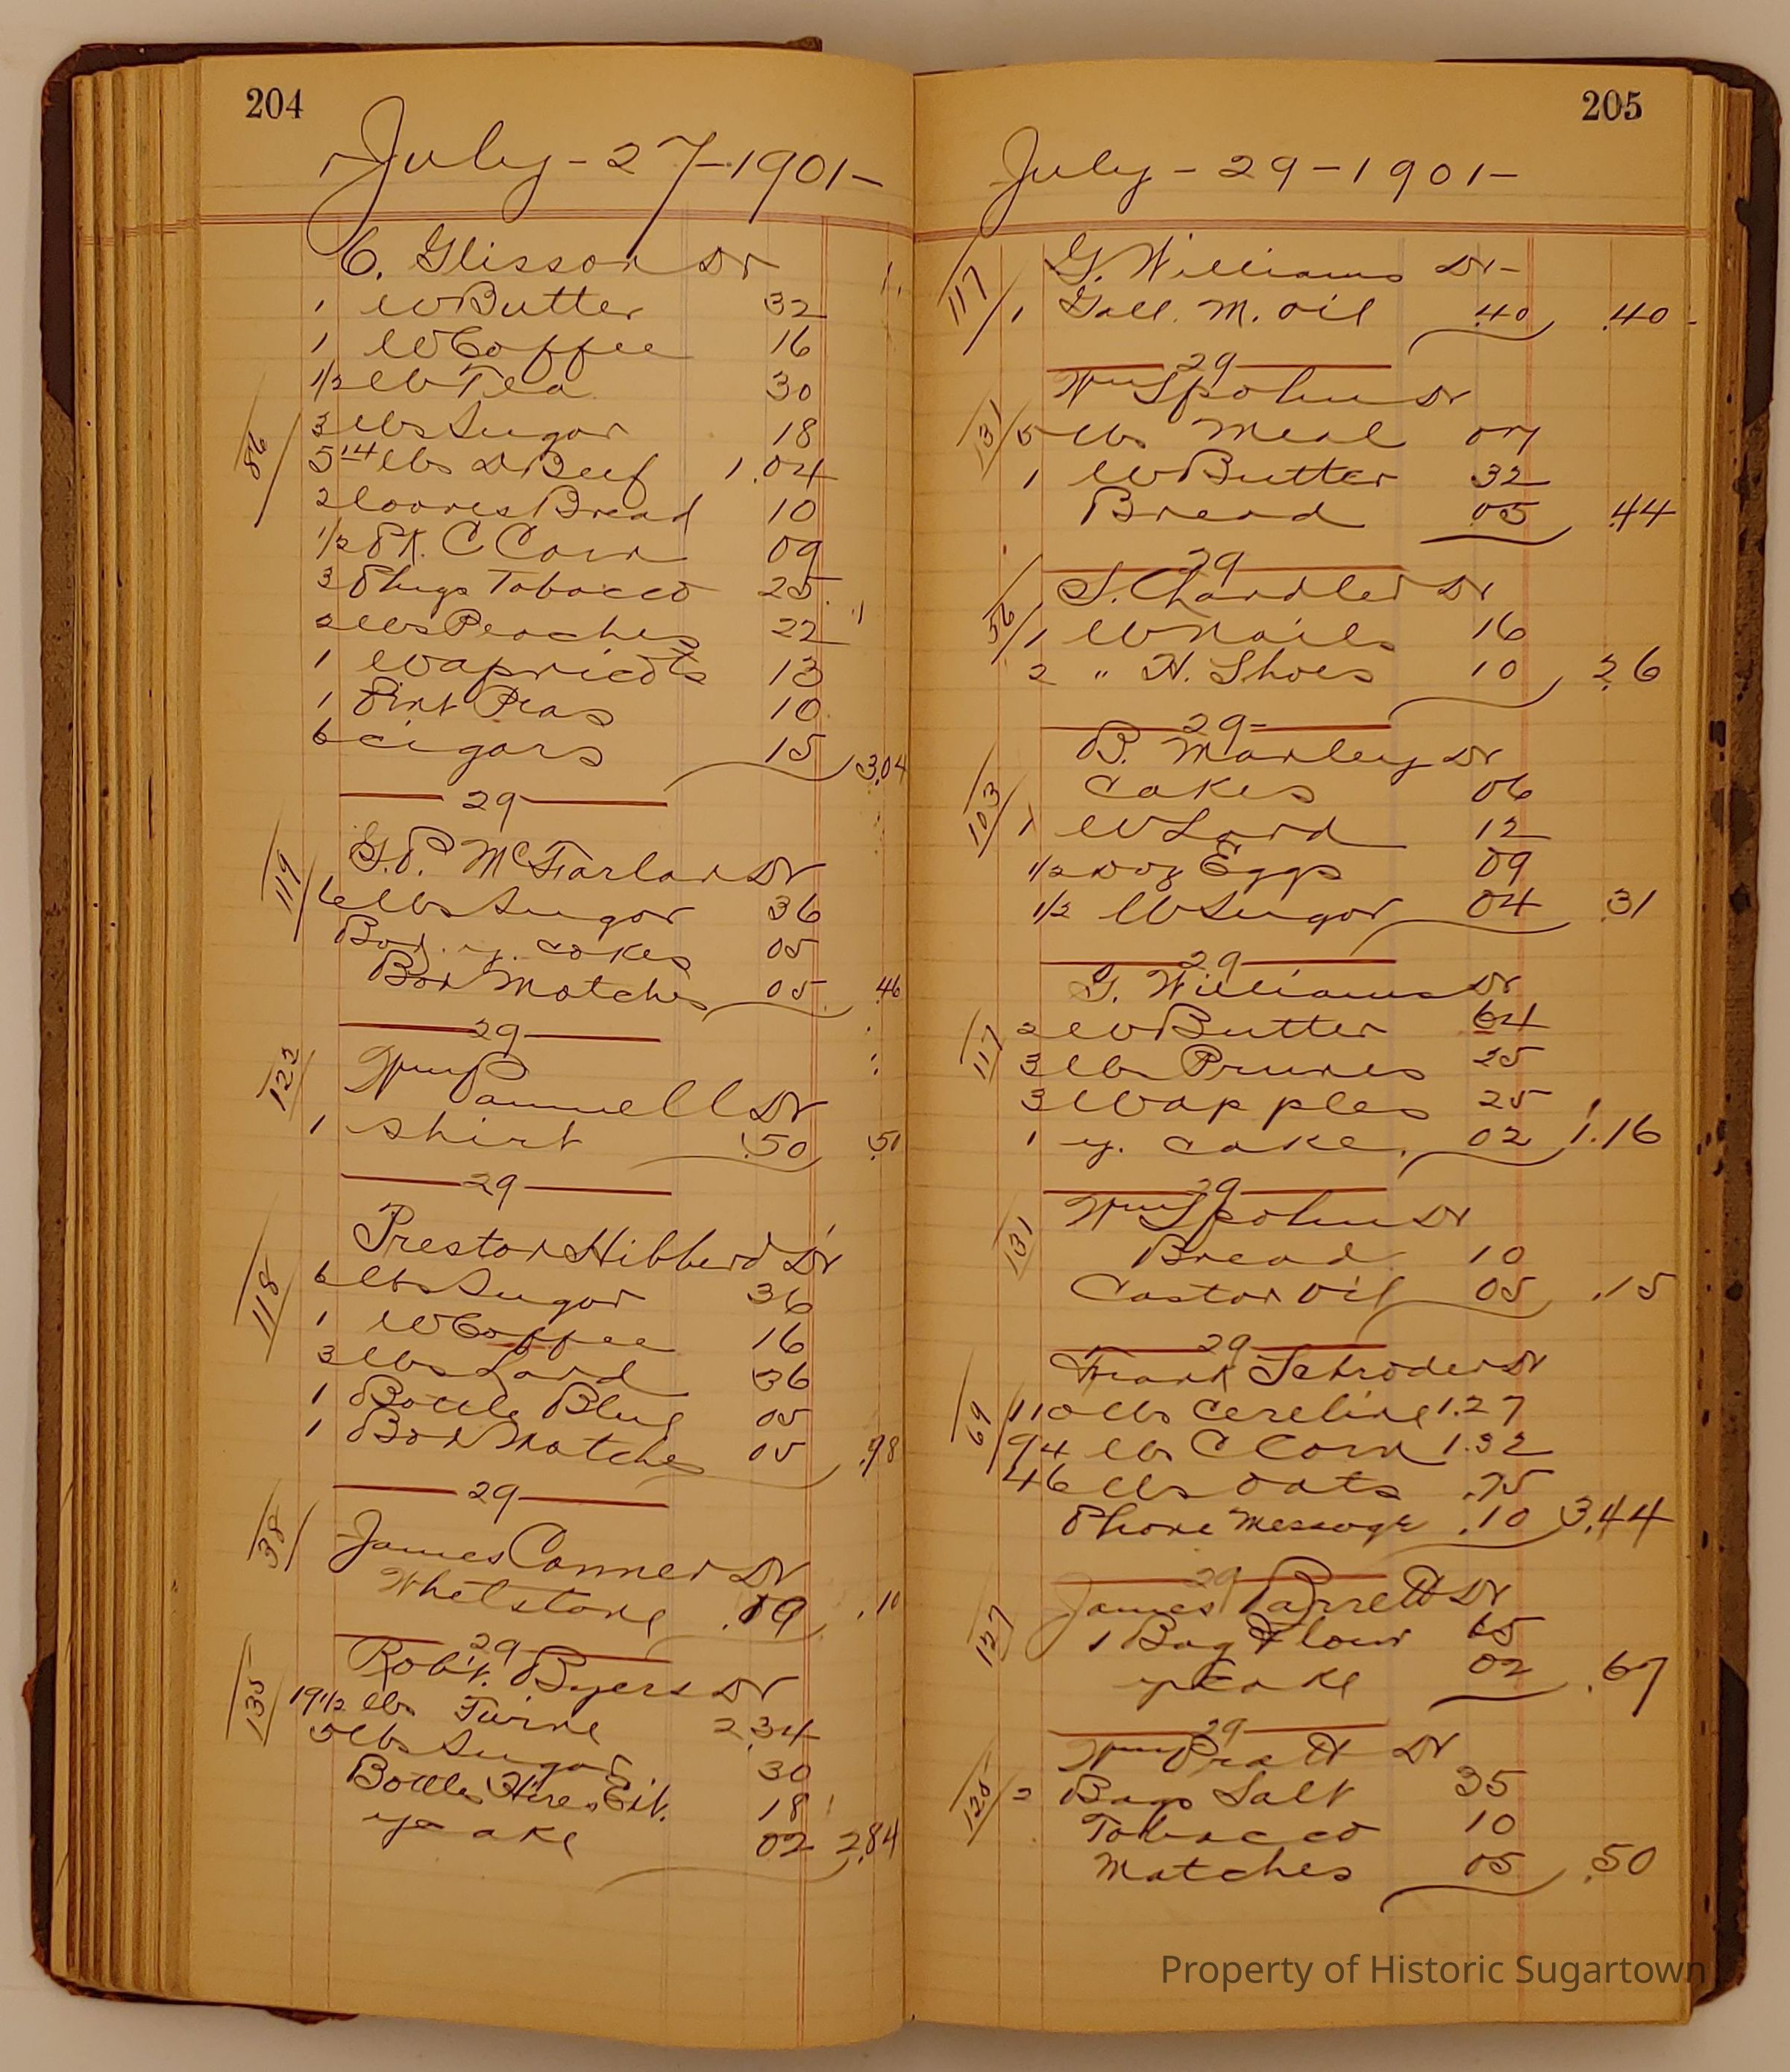 204
July - 27 - 1901 -
C. Glisson Dr
1 lb Butter 32
1 lb Coffee 16
1/2 lb Tea 30
86
3 lbs Sugar 18
5 14 lbs D Beef 1.04
2 loaves Bread 10
1/2 Pk. C Corn 09
3 Plugs Tobacco 25
2 lbs Peaches 22
1 lb apricots 13
1 Pint Peas 10
6 cigars 15 3.04
29
G.P. McFarlan Dr
119
6 lbs Sugar 36
y. cakes 05
Box Matches 05 .46
29
123
Wm Pannell Dr
1 shirt .50 .50
29
Preston Hibberd Dr
118
6 lbs Sugar 36
1 lb Coffee 16
3 lbs Lard 36
1 Bottle Blue 05
1 Box Matches 05 .98
29
38
James Conner Dr
Whetstone .10
29
Robt. Byers Dr
135
19 1/2 lbs Twine 2.34
5 lbs Sugar 30
Bottle Hires Ext. 18
y cake 02 2.84
205
July - 29 - 1901 -
G. Williams Dr -
117
1 Gall. M. Oil .40 .40
29
Wm Spohn Dr
131
5 lbs Meal 07
1 lb Butter 32
Bread 05 .44
29
S. Chandler Dr
56
1 lb Nails 16
2 " H. Shoes 10 .26
29
B. Manley Dr
Cakes 06
103
1 lb Lard 12
1/2 Doz Eggs 09
1/2 lb Sugar 04 .31
29
G. Williams Dr
117
2 lb Butter 64
3 lbs Prunes 25
3 lb apples 25
1 y. cake. 02 1.16
29
Wm Spohn Dr
131
Bread 10
Castor Oil 05 .15
29
Frank Schroder Dr
69
110 lbs Cereline 1.27
94 lbs C Corn 1.32
46 lbs Oats .75
Phone Message .10 3.44
29
James Parrett Dr
127
1 Bag Flour 65
y Cake 02 .67
29
Wm Pratt Dr
125
2 Bags Salt 35
Tobacco 10
Matches 05 .50
Property of Historic Sugartown